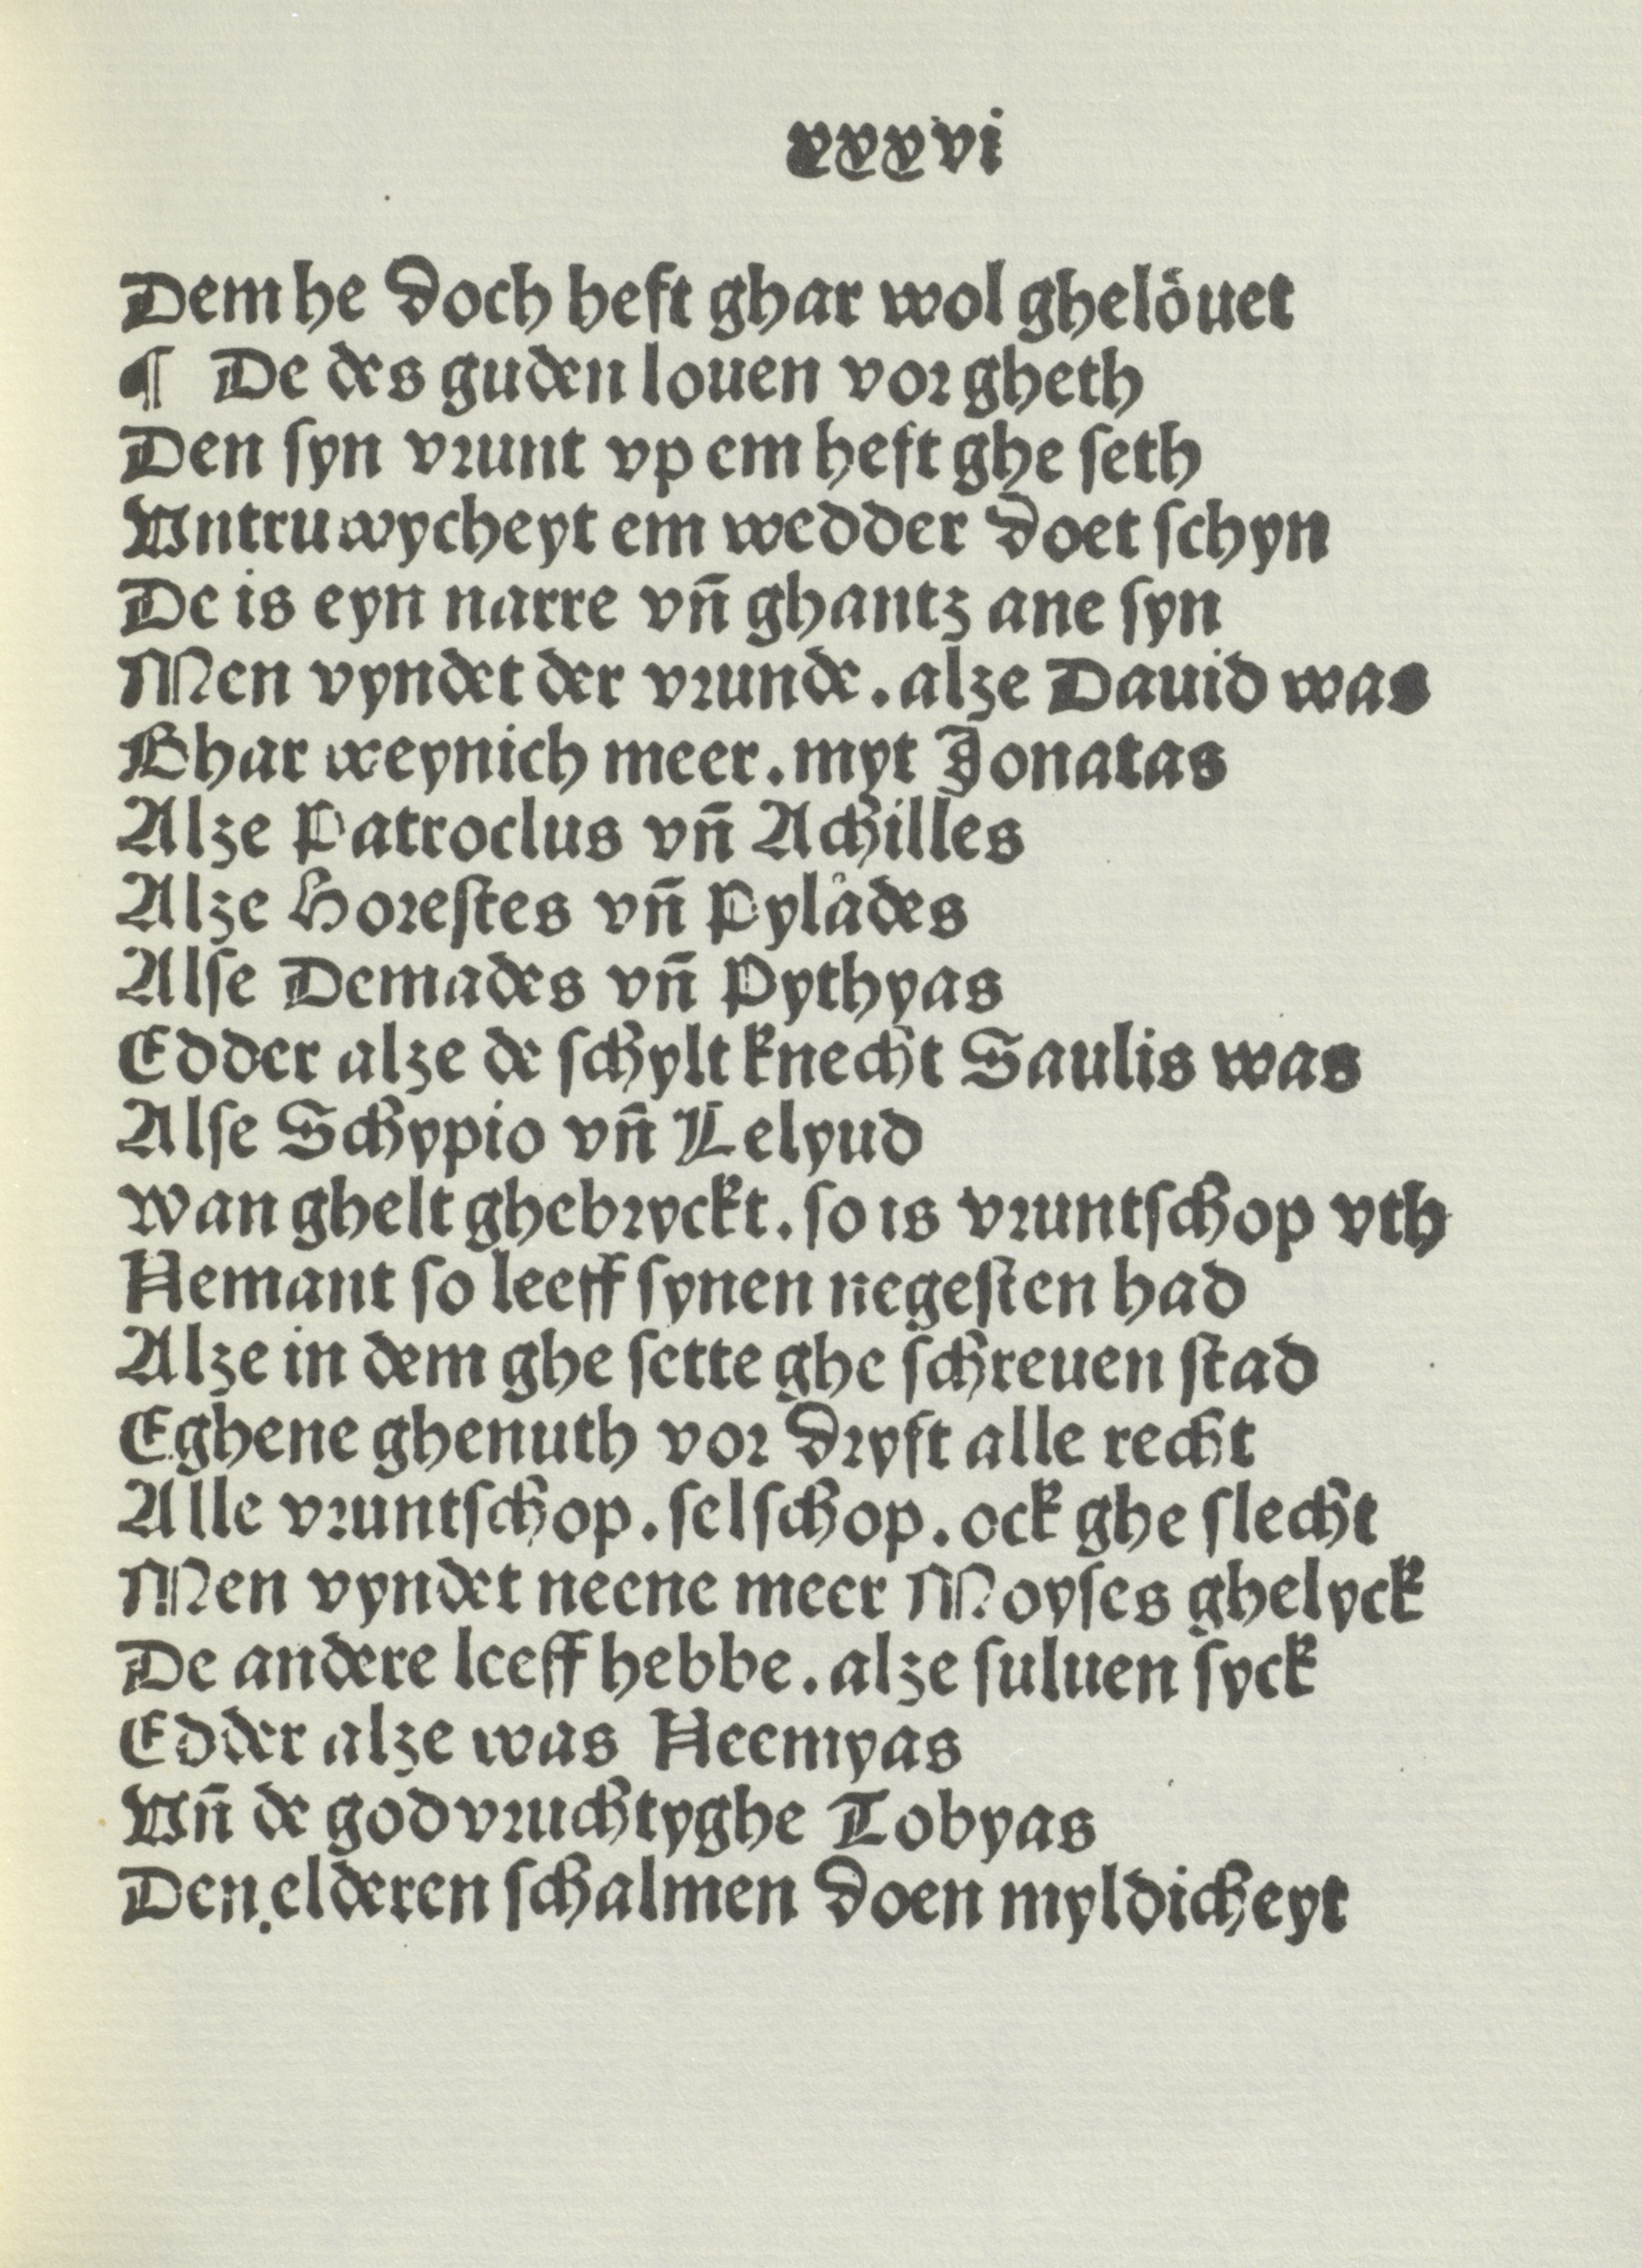 xxxvi
Dem he doch heft ghar wol ghelöuet
¶ De des guden louen vor gheth
Den ſyn vrunt vp em heft ghe ſeth
Vntruwycheyt em wedder doet ſchyn
De is eyn narre vn̄ ghantz ane ſyn
Men vyndet der vrunde. alze Dauid was
Ghar weynich meer. myt Jonatas
Alze Patroclus vn̄ Achilles
Alze Horeſtes vn̄ Pylådes
Alſe Demades vn̄ Pythyas
Edder alze de ſchylt knecht Saulis was
Alſe Schypio vn̄ Lelyud
Wan ghelt ghebryckt. ſo is vruntſchop vth
Nemant ſo leeff ſynen negeſten had
Alze in dem ghe ſette ghe ſchreuen ſtad
Eghene ghenuth vor dryft alle recht
Alle vruntſchop. ſelſchop. ock ghe ſlecht
Men vyndet neene meer Moyſes ghelyck
De andere leeff hebbe. alze ſuluen ſyck
Edder alze was Neemyas
Vn̄ de godvruchtyghe Tobyas
Den elderen ſchalmen doen myldicheyt